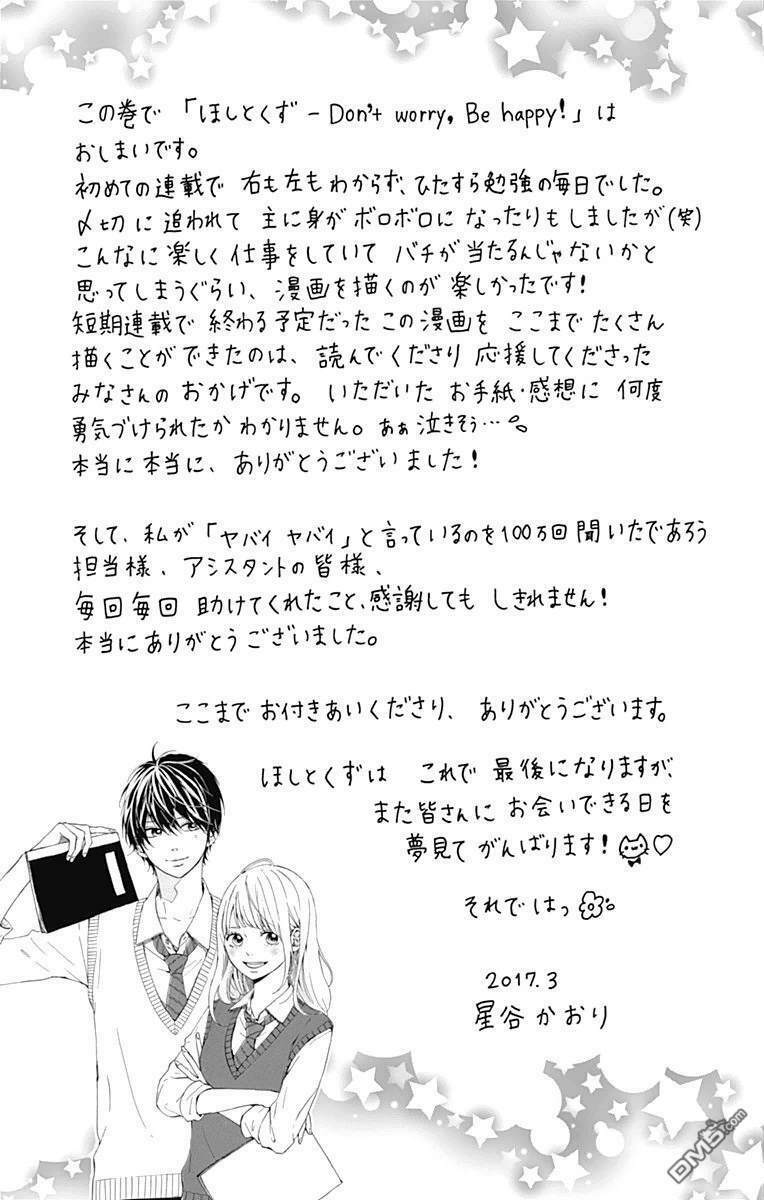 この巻で「ほしとくず - Don't worry, Be happy!」は
おしまいです。
初めての連載で 右も左もわからず、ひたすら勉強の毎日でした。
〆切に追われて 主に身がボロボロになったりもしましたが(笑)
こんなに楽しく仕事をしていて バチが当たるんじゃないかと
思ってしまうぐらい、漫画を描くのが楽しかったです!
短期連載で終わる予定だったこの漫画を ここまでたくさん
描くことができたのは、読んでくださり応援してくださった
みなさんのおかげです。いただいた お手紙・感想に 何度
勇気づけられたかわかりません。あぁ泣きそう…
本当に本当に、ありがとうございました!
そして、私が「ヤバイヤバイ」と言っているのを100万回聞いたであろう
担当様、アシスタントの皆様、
毎回毎回 助けてくれたこと、感謝してもしきれません!
本当にありがとうございました。
ここまでお付きあいくださり、ありがとうございます。
ほしとくずは これで最後になりますが、
また皆さんに お会いできる日を
夢見て がんばります!♡
それではっ
2017.3
星谷かおり
DM5.com